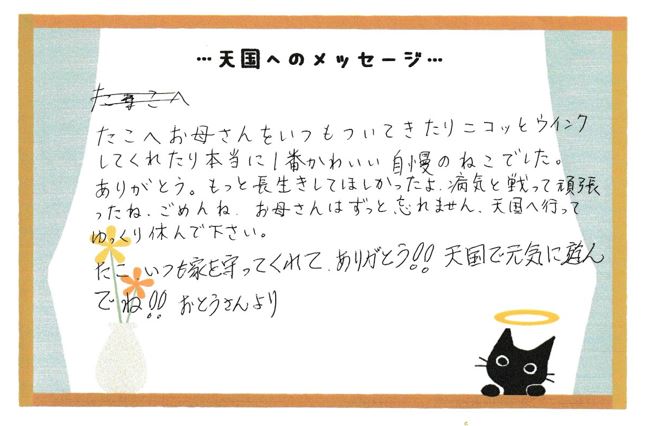 …天国へのメッセージ…
たこへお母さんをいつもついてきたりニコッとウインク
してくれたり本当に1番かわいい自慢のねこでした。
ありがとう。もっと長生きしてほしかったよ、病気と戦って頑張
ったね、ごめんね、お母さんはずっと忘れません、天国へ行って
ゆっくり休んで下さい。
たこ、いつも家を守ってくれて、ありがとう!! 天国で元気に遊ん
でね!! おとうさんより